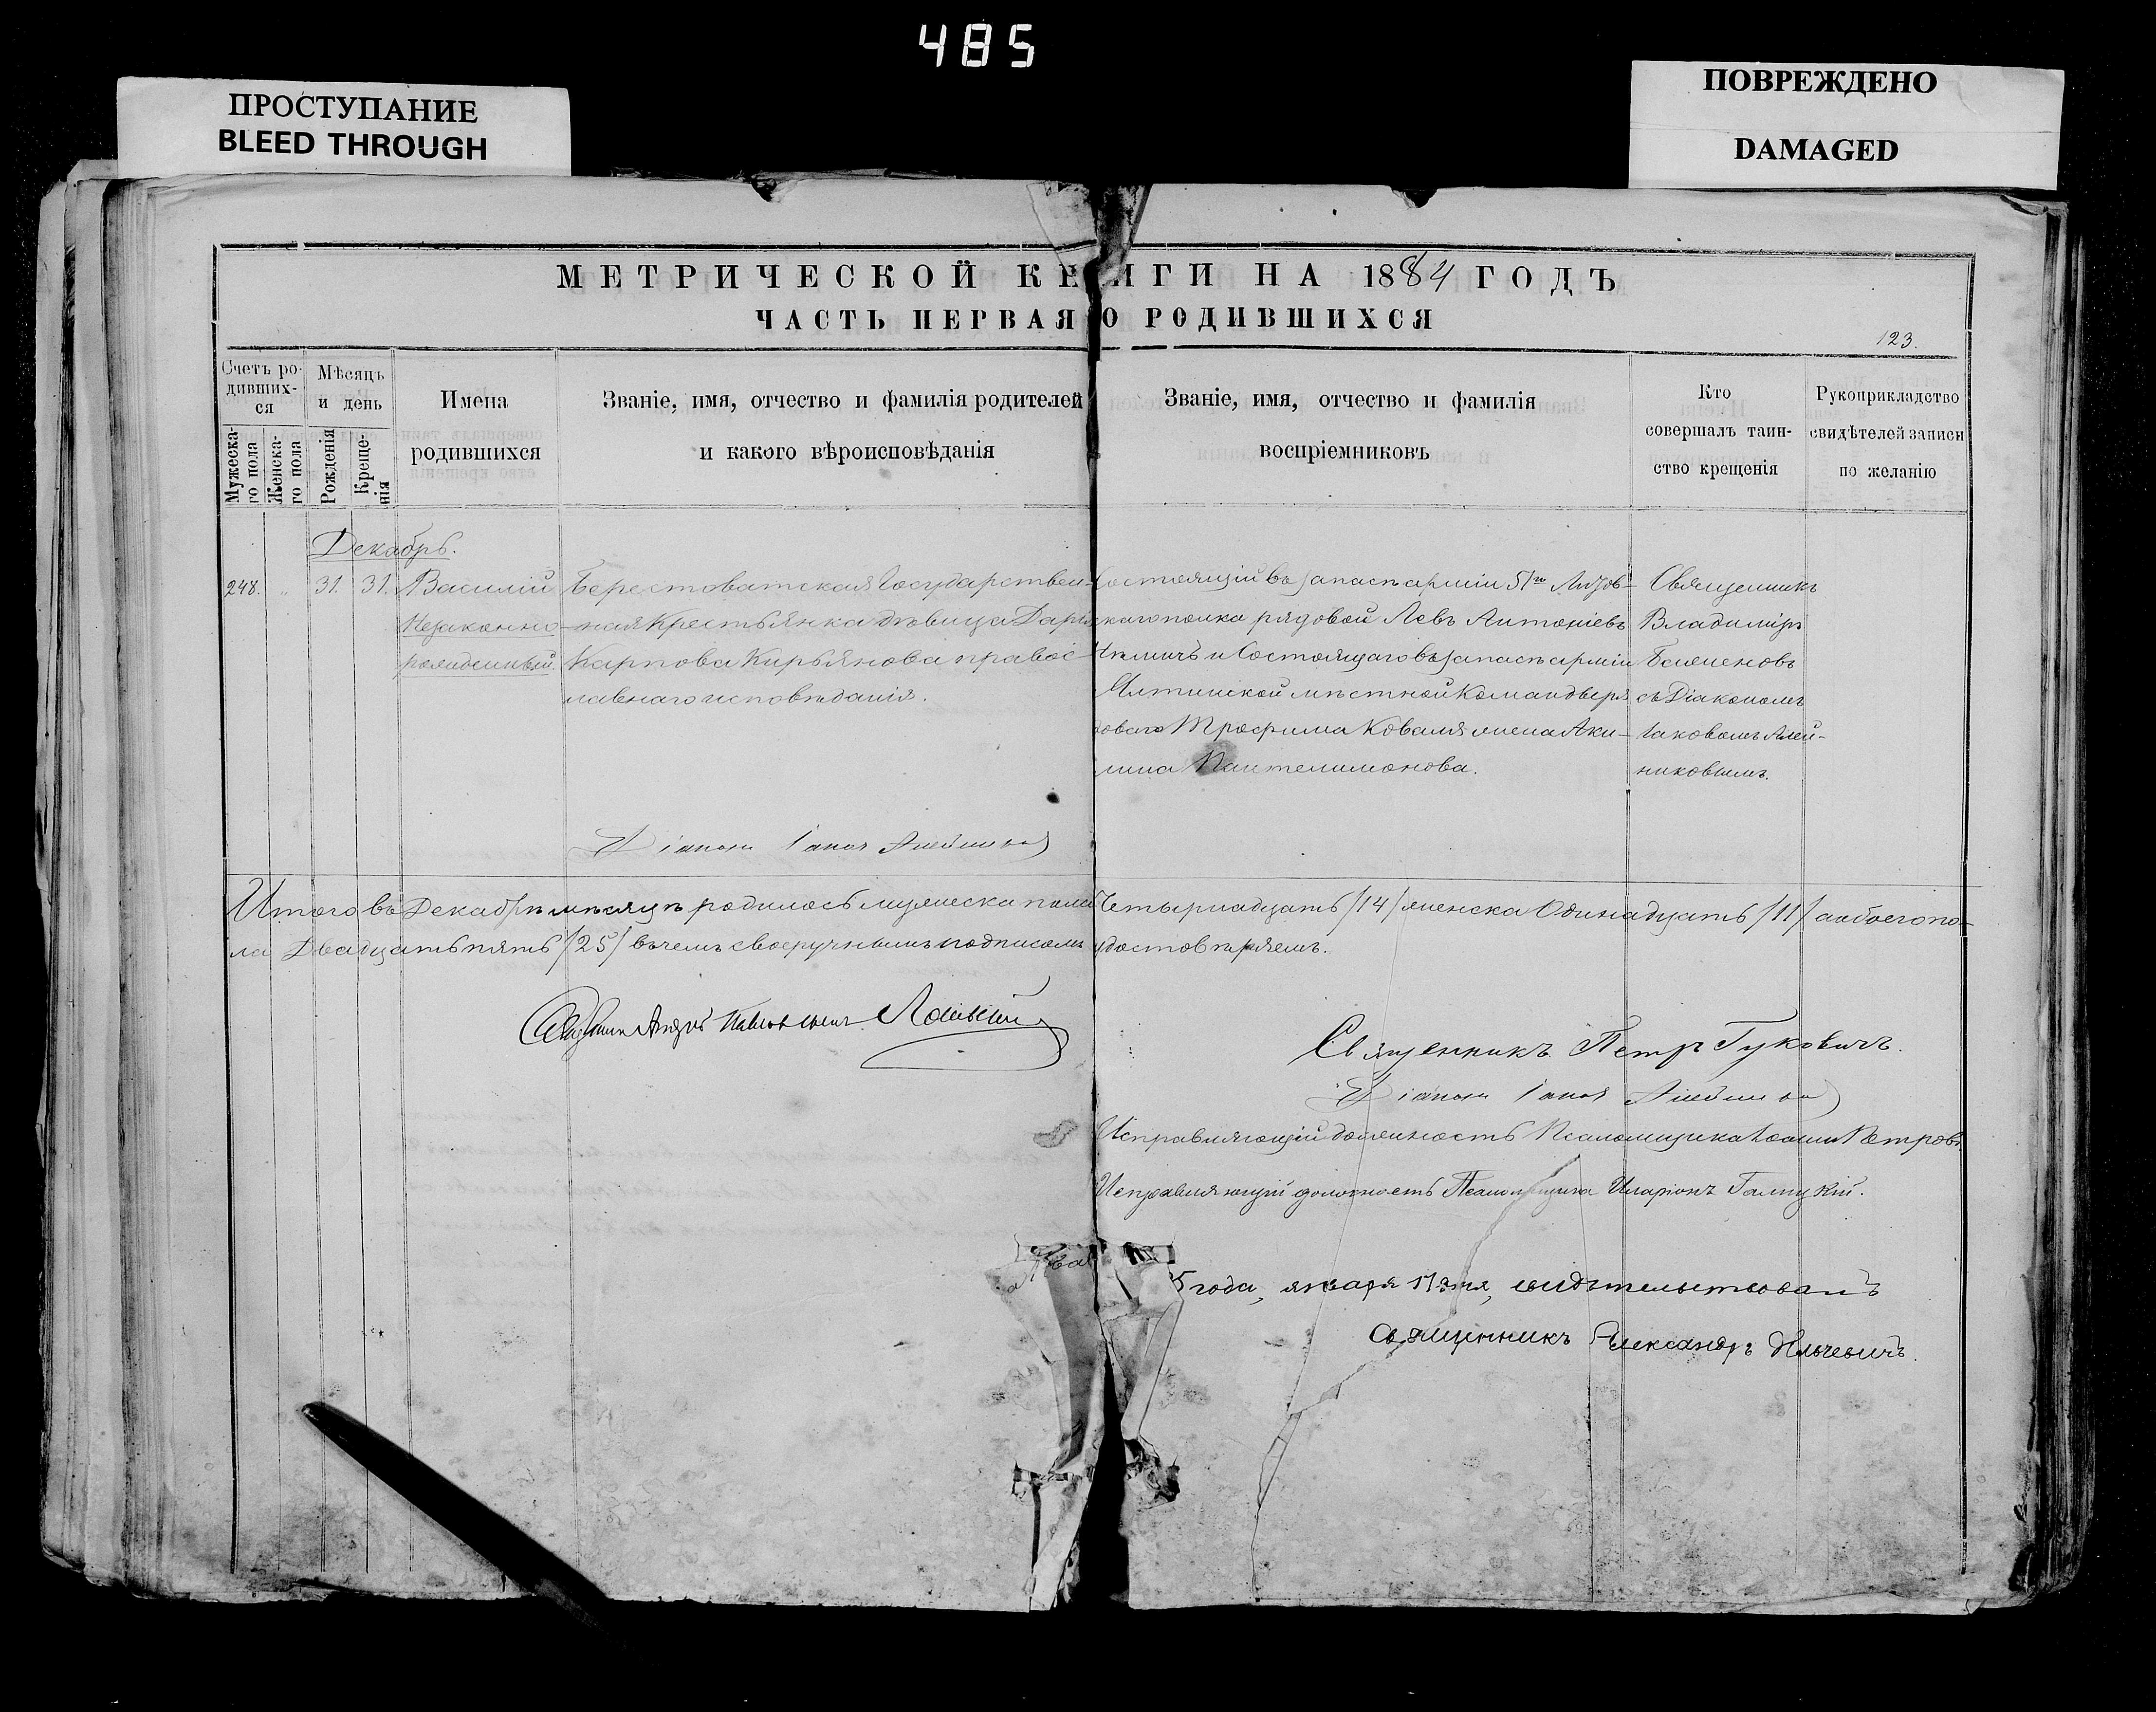 485
ПРОСТУПАНИЕ
BLEED THROUGH
ПОВРЕЖДЕНО
DAMAGED
МЕТРИЧЕСКОЙ КНИГИ НА 1884 ГОДЪ
ЧАСТЬ ПЕРВАЯ О РОДИВШИХСЯ
123.
Счетъ ро-
дивших-
ся
Мужеска-
го пола
Женска-
го пола
Мѣсяцъ
и день
Рожденія
Креще-
нія
Имена
родившихся
Званіе, имя, отчество и фамилія родителей
и какого вѣроисповѣданія
Званіе, имя, отчество и фамилія
воспріемниковъ
Кто
совершалъ таин-
ство крещенія
Рукоприкладство
свидѣтелей записи
по желанію
Декабрь.
248. " 31. 31.
Василий
Незаконно
рожденный.
Берестоватская Государствен-
ная Крестьянка дѣвица Дарія
Карпова Кирьянова правос-
лавнаго исповѣданія.
Состоящій въ запасѣ арміи 51го Литов-
скаго полка рядовой Левъ Антоніевъ
и Состоящаго въ запасѣ арміи
мѣстной Команды ря
доваго Трофима Коваля жена Аки-
лина Пантелимонова.
Священникъ
Владиміръ
Баженовъ
съ Діакономъ
Іаковомъ Алей-
никовымъ.
Діаконъ Іаковъ Алейниковъ
Итого въ Декабрѣ мѣсяцѣ родилось мужеска пола Четырнадцать /14/ женска Одинадцать /11/ а обоего по-
ла Двадцать пять /25/ въ чемъ своеручнымъ подписомъ удостовѣряемъ.
Священникъ Андрей
Священникъ Петръ Гуковичъ.
Діаконъ Іаковъ Алейниковъ
Исправляющій должность Псаломщика Іоаннъ Петровъ.
Исправляющій должность Псаломщика Иларіонъ Галицкій.
5 года, января 17 дня, свидѣтельствовалъ
священникъ Александръ Ильчевичъ.